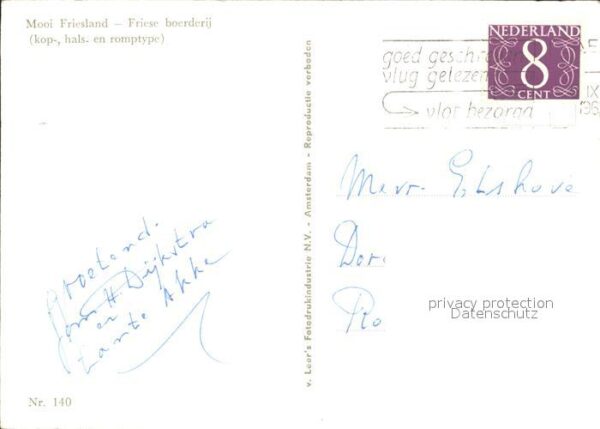 Mooi Friesland — Friese boerderij
(kop-, hals- en romptype)
NEDERLAND
8
CENT
goed geschre
vlug gelezen
vlot bezorgd
IX
196
v. Leer's Fotodrukindustrie N.V. - Amsterdam - Reproductie verboden
Mevr.
Dor
Ro
privacy protection
Datenschutz
Groetend.
H. Dijkstra
en
tante Akke
Nr. 140